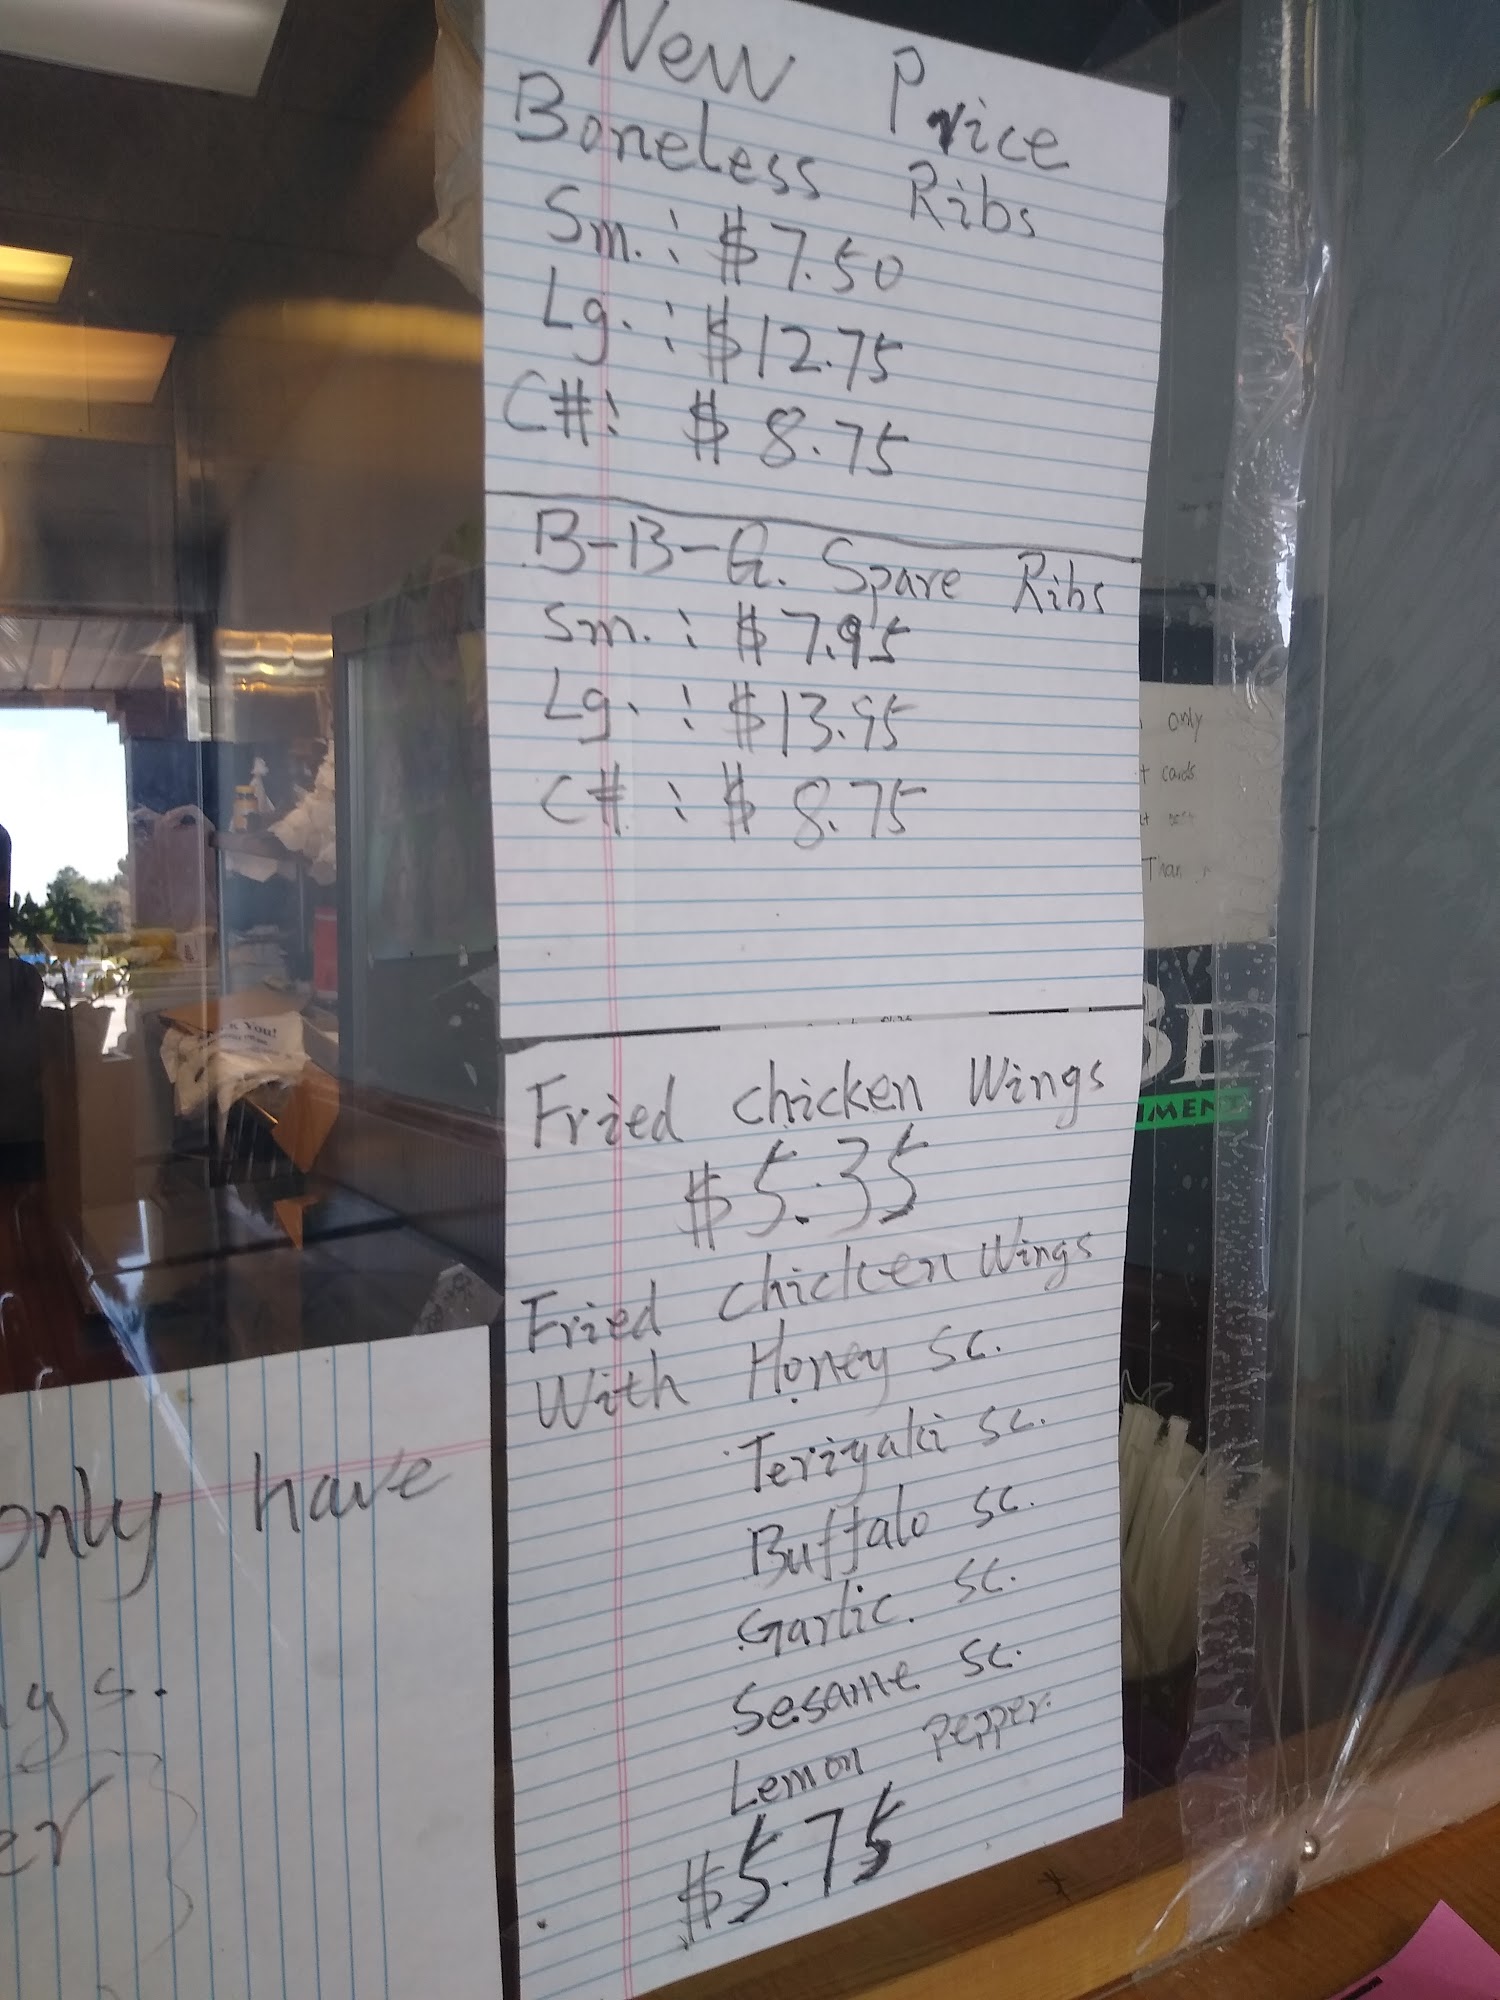 New Price
Boneless Ribs
Sm.: $7.50
Lg.: $12.75
C#: $8.75
B-B-Q. Spare Ribs
Sm.: $7.95
Lg.: $13.95
C#: $8.75
Fried chicken Wings
$5.35
Fried chicken Wings
With Honey sc.
Teriyaki sc.
Buffalo sc.
Garlic. sc.
Sesame sc.
Lemon pepper.
$5.75
only have
gs.
er
only
cards
BE
MENT
You!